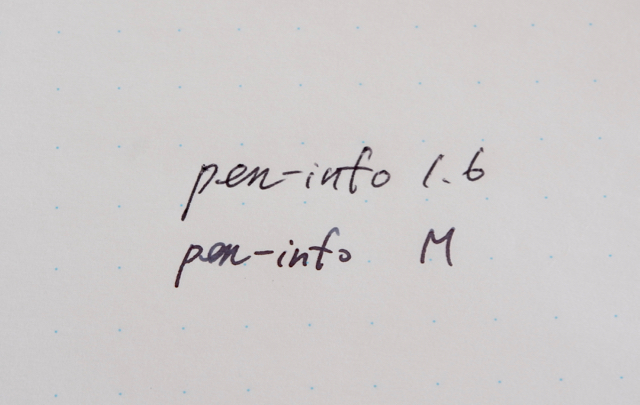 pen-info 1.6
pen-info M